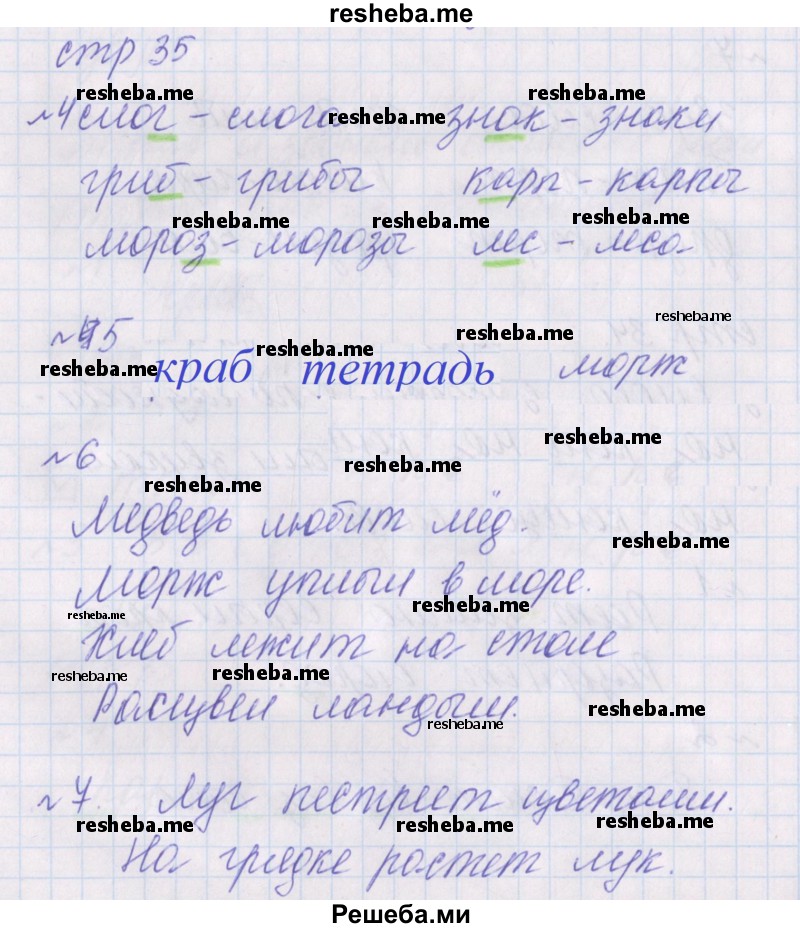 resheba.me
стр 35
resheba.me resheba.me
№4 слог - слога знак - знаки
resheba.me
гриб - грибы карп - карпы
resheba.me resheba.me resheba.me
мороз - морозы лес - леса
resheba.me
№5 resheba.me
resheba.me resheba.me
краб тетрадь морж
resheba.me
№6 resheba.me
resheba.me
Медведь любит мёд.
resheba.me
Морж уплыл в море.
resheba.me resheba.me
Хлеб лежит на столе
resheba.me resheba.me
Расцвел ландыш. resheba.me
resheba.me
№7. Луг пестреет цветами.
resheba.me resheba.me resheba.me
На грядке растет лук.
Решеба.ми